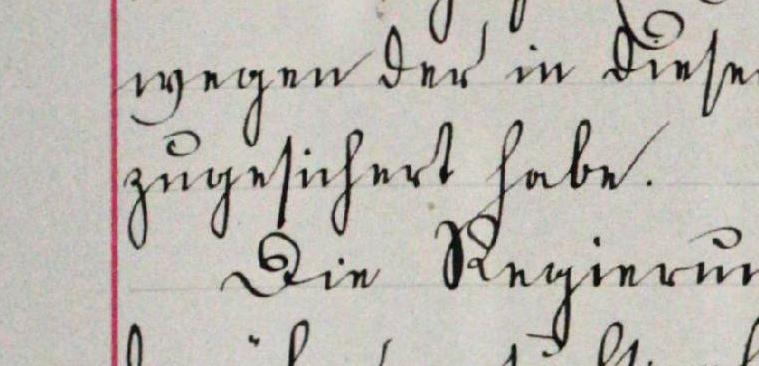 wegen der in diese
zugesichert habe.
Die Regierun